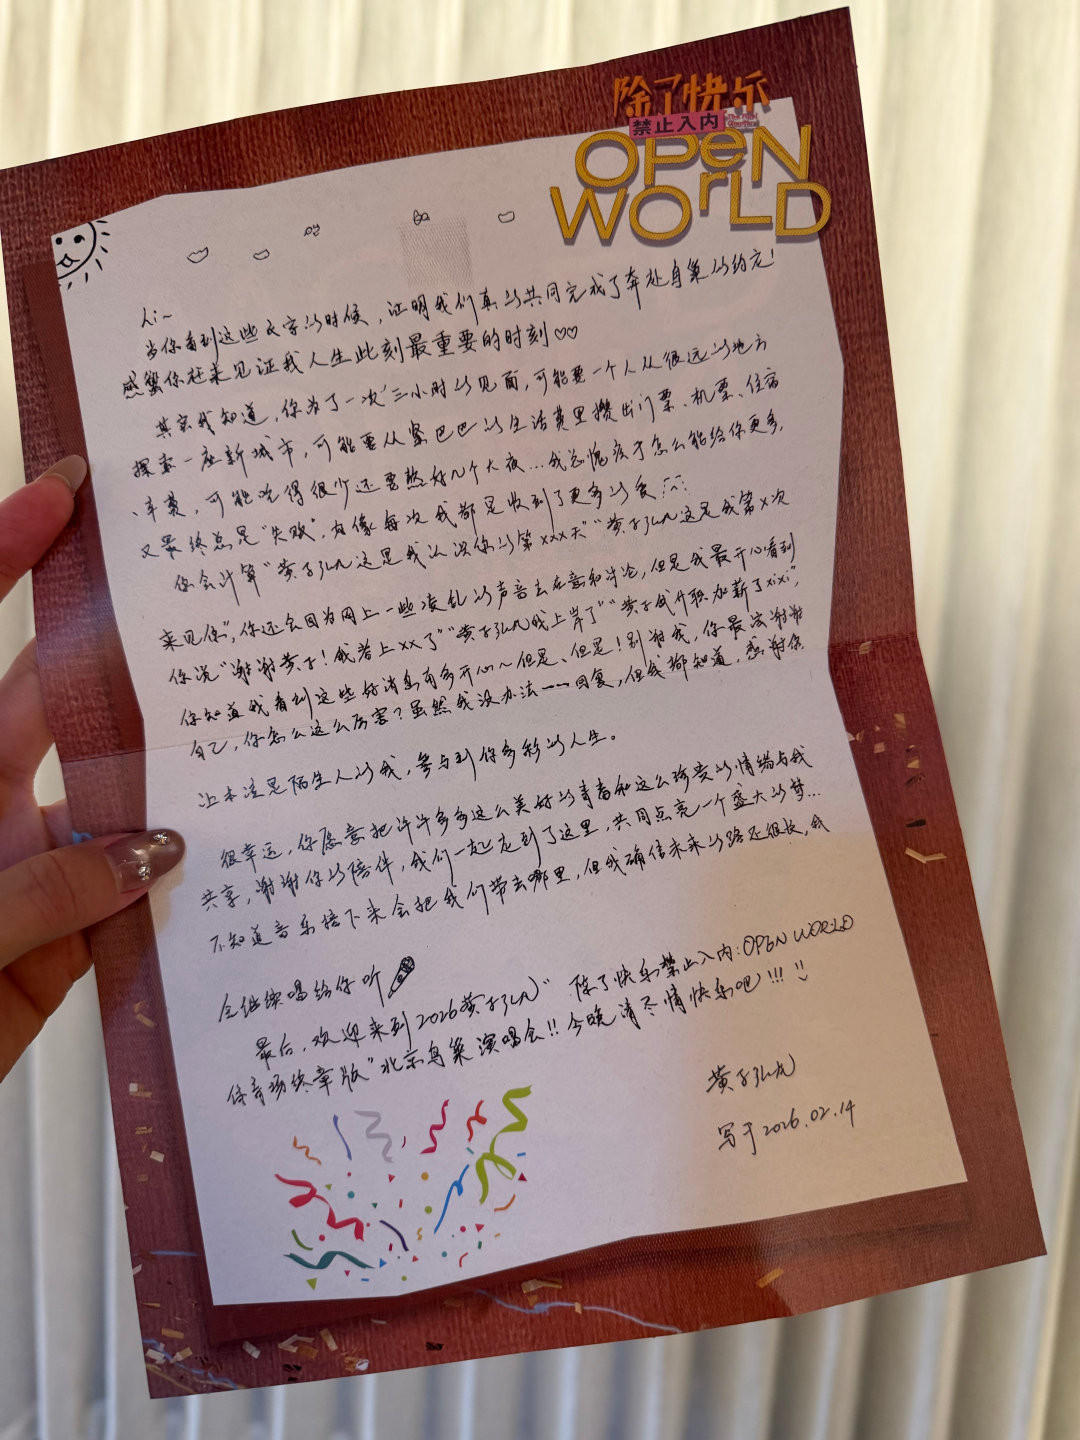 除了快乐
禁止入内
OPeN
WOrLD
Hi~
当你看到这些文字的时候，证明我们真的共同完成了奔赴鸟巢的约定！
感谢你赶来见证我人生此刻最重要的时刻♡♡
其实我知道，你为了一次三小时的见面，可能要一个人从很远的地方
探索一座新城市，可能要从紧巴巴的生活费里攒出门票、机票、住宿
、车费，可能吃得很少还要熬好几个大夜…我总愧疚才怎么能给你更多，
又最终总是“失败”，好像每次我都是收到了更多的爱
你会计算“黄子弘凡这是我认识你的第xxx天”“黄子弘凡这是我第x次
来见你”，你还会因为网上一些凌乱的声音去在意和讨论，但是我最开心看到
你说“谢谢黄子！我考上xx了”“黄子弘凡我上岸了”“黄子我升职加薪了xixi”，
你知道我看到这些好消息有多开心～但是、但是！别谢我，你最该谢谢
自己，你怎么这么厉害？虽然我没办法一一回复，但我都知道，感谢你
让本该是陌生人的我，参与到你多彩的人生。
很幸运，你愿意把许许多多这么美好的青春和这么珍贵的情绪与我
共享，谢谢你的陪伴，我们一起走到了这里，共同点亮一个盛大的梦…
不知道音乐接下来会把我们带去哪里，但我确信未来的路还很长，我
会继续唱给你听
最后，欢迎来到2026黄子弘凡“除了快乐禁止入内：OPEN WORLD
体育场终章版”北京鸟巢演唱会!!今晚请尽情快乐吧!!!
黄子弘凡
写于2026.02.14